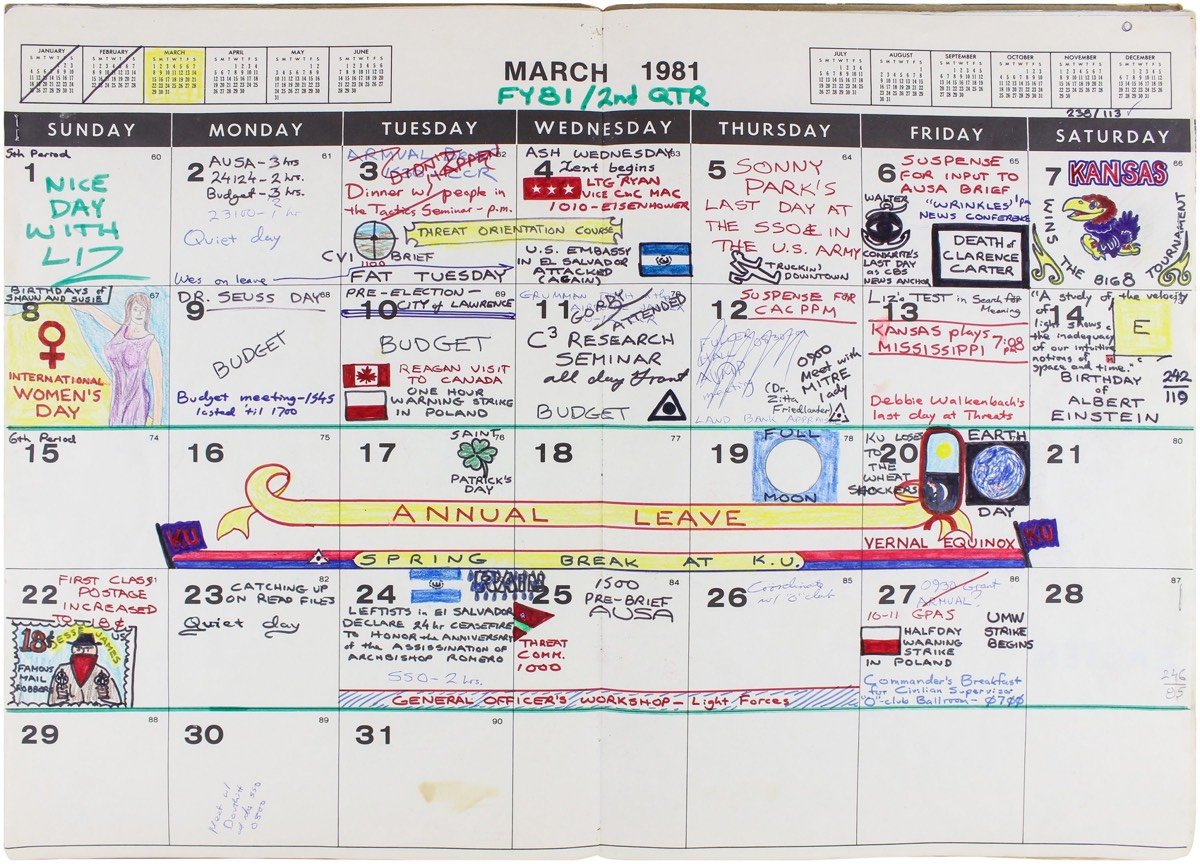 JANUARY
FEBRUARY
MARCH
APRIL
MAY
JUNE
MARCH 1981
FY81/2nd QTR
JULY
AUGUST
SEPTEMBER
OCTOBER
NOVEMBER
DECEMBER
238/113
SUNDAY MONDAY TUESDAY WEDNESDAY THURSDAY FRIDAY SATURDAY
5th Period 60
1
NICE
DAY
WITH
LIZ
61
2 AUSA-3 hrs
24124-2 hrs.
Budget-3 hrs.
23100-1 hr
Quiet day
Wes on leave
62
3
DIDN'T HAPPEN
Dinner w/ people in
the Tactics Seminar-p.m.
THREAT ORIENTATION COURSE
1100
CVI BRIEF
FAT TUESDAY
ASH WEDNESDAY 63
4 Lent begins
LTG RYAN
VICE CinC MAC
1010-EISENHOWER
U.S. EMBASSY
IN EL SALVADOR
ATTACKED
(AGAIN)
64
5 SONNY
PARK'S
LAST DAY AT
THE SSO IN
THE U.S. ARMY
TRUCKIN'
DOWNTOWN
65
6 SUSPENSE
FOR INPUT TO
AUSA BRIEF
WALTER
CONKRITE'S
LAST DAY
as CBS
NEWS ANCHOR
"WRINKLES" 1pm
NEWS CONFERENCE
DEATH of
CLARENCE
CARTER
66
7 KANSAS
WINS THE BIG 8 TOURNAMENT
BIRTHDAYS of
SHAUN AND SUSIE 67
8
INTERNATIONAL
WOMEN'S
DAY
DR. SEUSS DAY 68
9
BUDGET
Budget meeting-1545
lasted 'til 1700
PRE-ELECTION- 69
10 CITY OF LAWRENCE
BUDGET
REAGAN VISIT
TO CANADA
ONE HOUR
WARNING STRIKE
IN POLAND
GRUMMAN 70
11 GORBY
ATTENDED
C³ RESEARCH
SEMINAR
all day Grant
BUDGET
71
12 SUSPENSE FOR
CACPPM
0900
Meet with
MITRE
lady
(Dr.
Zitta
Friedlander)
LAND BANK APPRAISAL
Liz's TEST in Search for 72
13 Meaning
KANSAS plays 7:08
MISSISSIPPI PM
Debbie Walkenbach's
last day at Threats
"A study of the velocity
of
14
light shows
the inadequacy
of our intuitive
notions of
space and time."
E
BIRTHDAY
of
ALBERT
EINSTEIN
242
119
6th Period 74
15
75
16
SAINT 76
17
PATRICK'S
DAY
77
18
78
19 FULL
MOON
KU LOSES 79
20
TO
THE
WHEAT
SHOCKERS
EARTH
DAY
VERNAL EQUINOX
80
21
ANNUAL LEAVE
KU
SPRING BREAK AT K.U.
KU
22 FIRST CLASS
POSTAGE
INCREASED
TO 18¢
18¢ JESSE JAMES US
FAMOUS
MAIL
ROBBERS
82
23 CATCHING UP
ON READ FILES
Quiet day
24
LEFTISTS in EL SALVADOR
DECLARE 24 hr CEASEFIRE
TO HONOR the ANNIVERSARY
of the ASSASSINATION OF
ARCHBISHOP ROMERO
SSO-2 hrs.
84
25 1500
PRE-BRIEF
AUSA
THREAT
COMM.
1000
GENERAL OFFICER'S WORKSHOP-Light Forces
85
26 Coordinate
w/ "O" club
86
27 0930 Grant
ARMUAL?
10-11 GPAS
HALFDAY
WARNING
STRIKE
IN POLAND
UMW
STRIKE
BEGINS
Commander's Breakfast
for Civilian Supervisor
"O"-club Ballroom-0700
87
28
246
85
88
29
89
30
Meet w/
0500
90
31